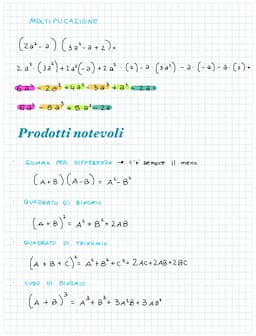 MOLTIPLICAZIONE
(2a²-a)(3a²-a+2)=
2a²·(3a²)+2a²(-a)+2a²·(2)-a·(3a²)-a·(-a)-a·(2)=
6a⁴-2a³+4a²-3a³+a²-2a=
6a⁴-5a³+5a²-2a
Prodotti notevoli
SOMMA PER DIFFERENZA → c'è sempre il meno
(A+B)(A-B)=A²-B²
QUADRATO DI BINOMIO
(A+B)²=A²+B²+2AB
QUADRATO DI TRINOMIO
(A+B+C)²=A²+B²+C²+2AC+2AB+2BC
CUBO DI BINOMIO
(A+B)³=A³+B³+3A²B+3AB²